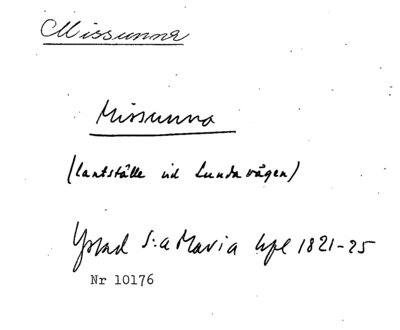 Missunna
Missunna
(lantställe vid Lundavägen)
Ystad S:a Maria hfl 1821-25
Nr 10176